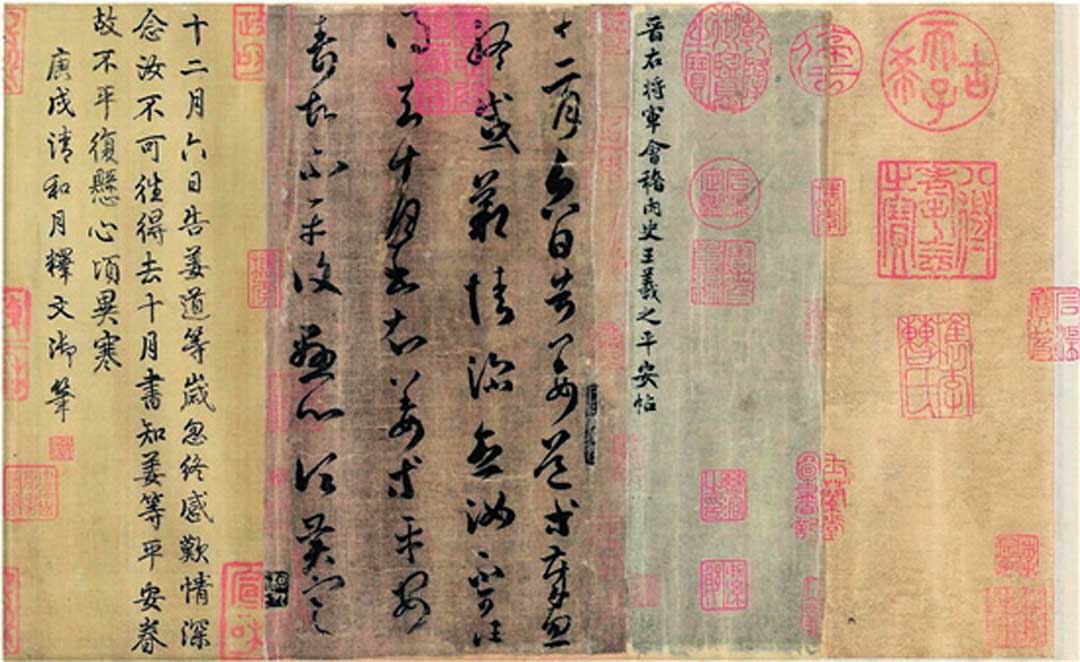 古希天子
八徵耄念之寶
乾隆御覽之寶
晉右將軍會稽內史王羲之平安帖
十二月六日告姜道等歲忽
終感歎情深念汝不可往
得去十月書知姜等平安
眷故不平復懸心頃異寒
十二月六日告姜道等歲忽終感歎情深
念汝不可往得去十月書知姜等平安眷
故不平復懸心頃異寒
庚戌清和月釋文御筆